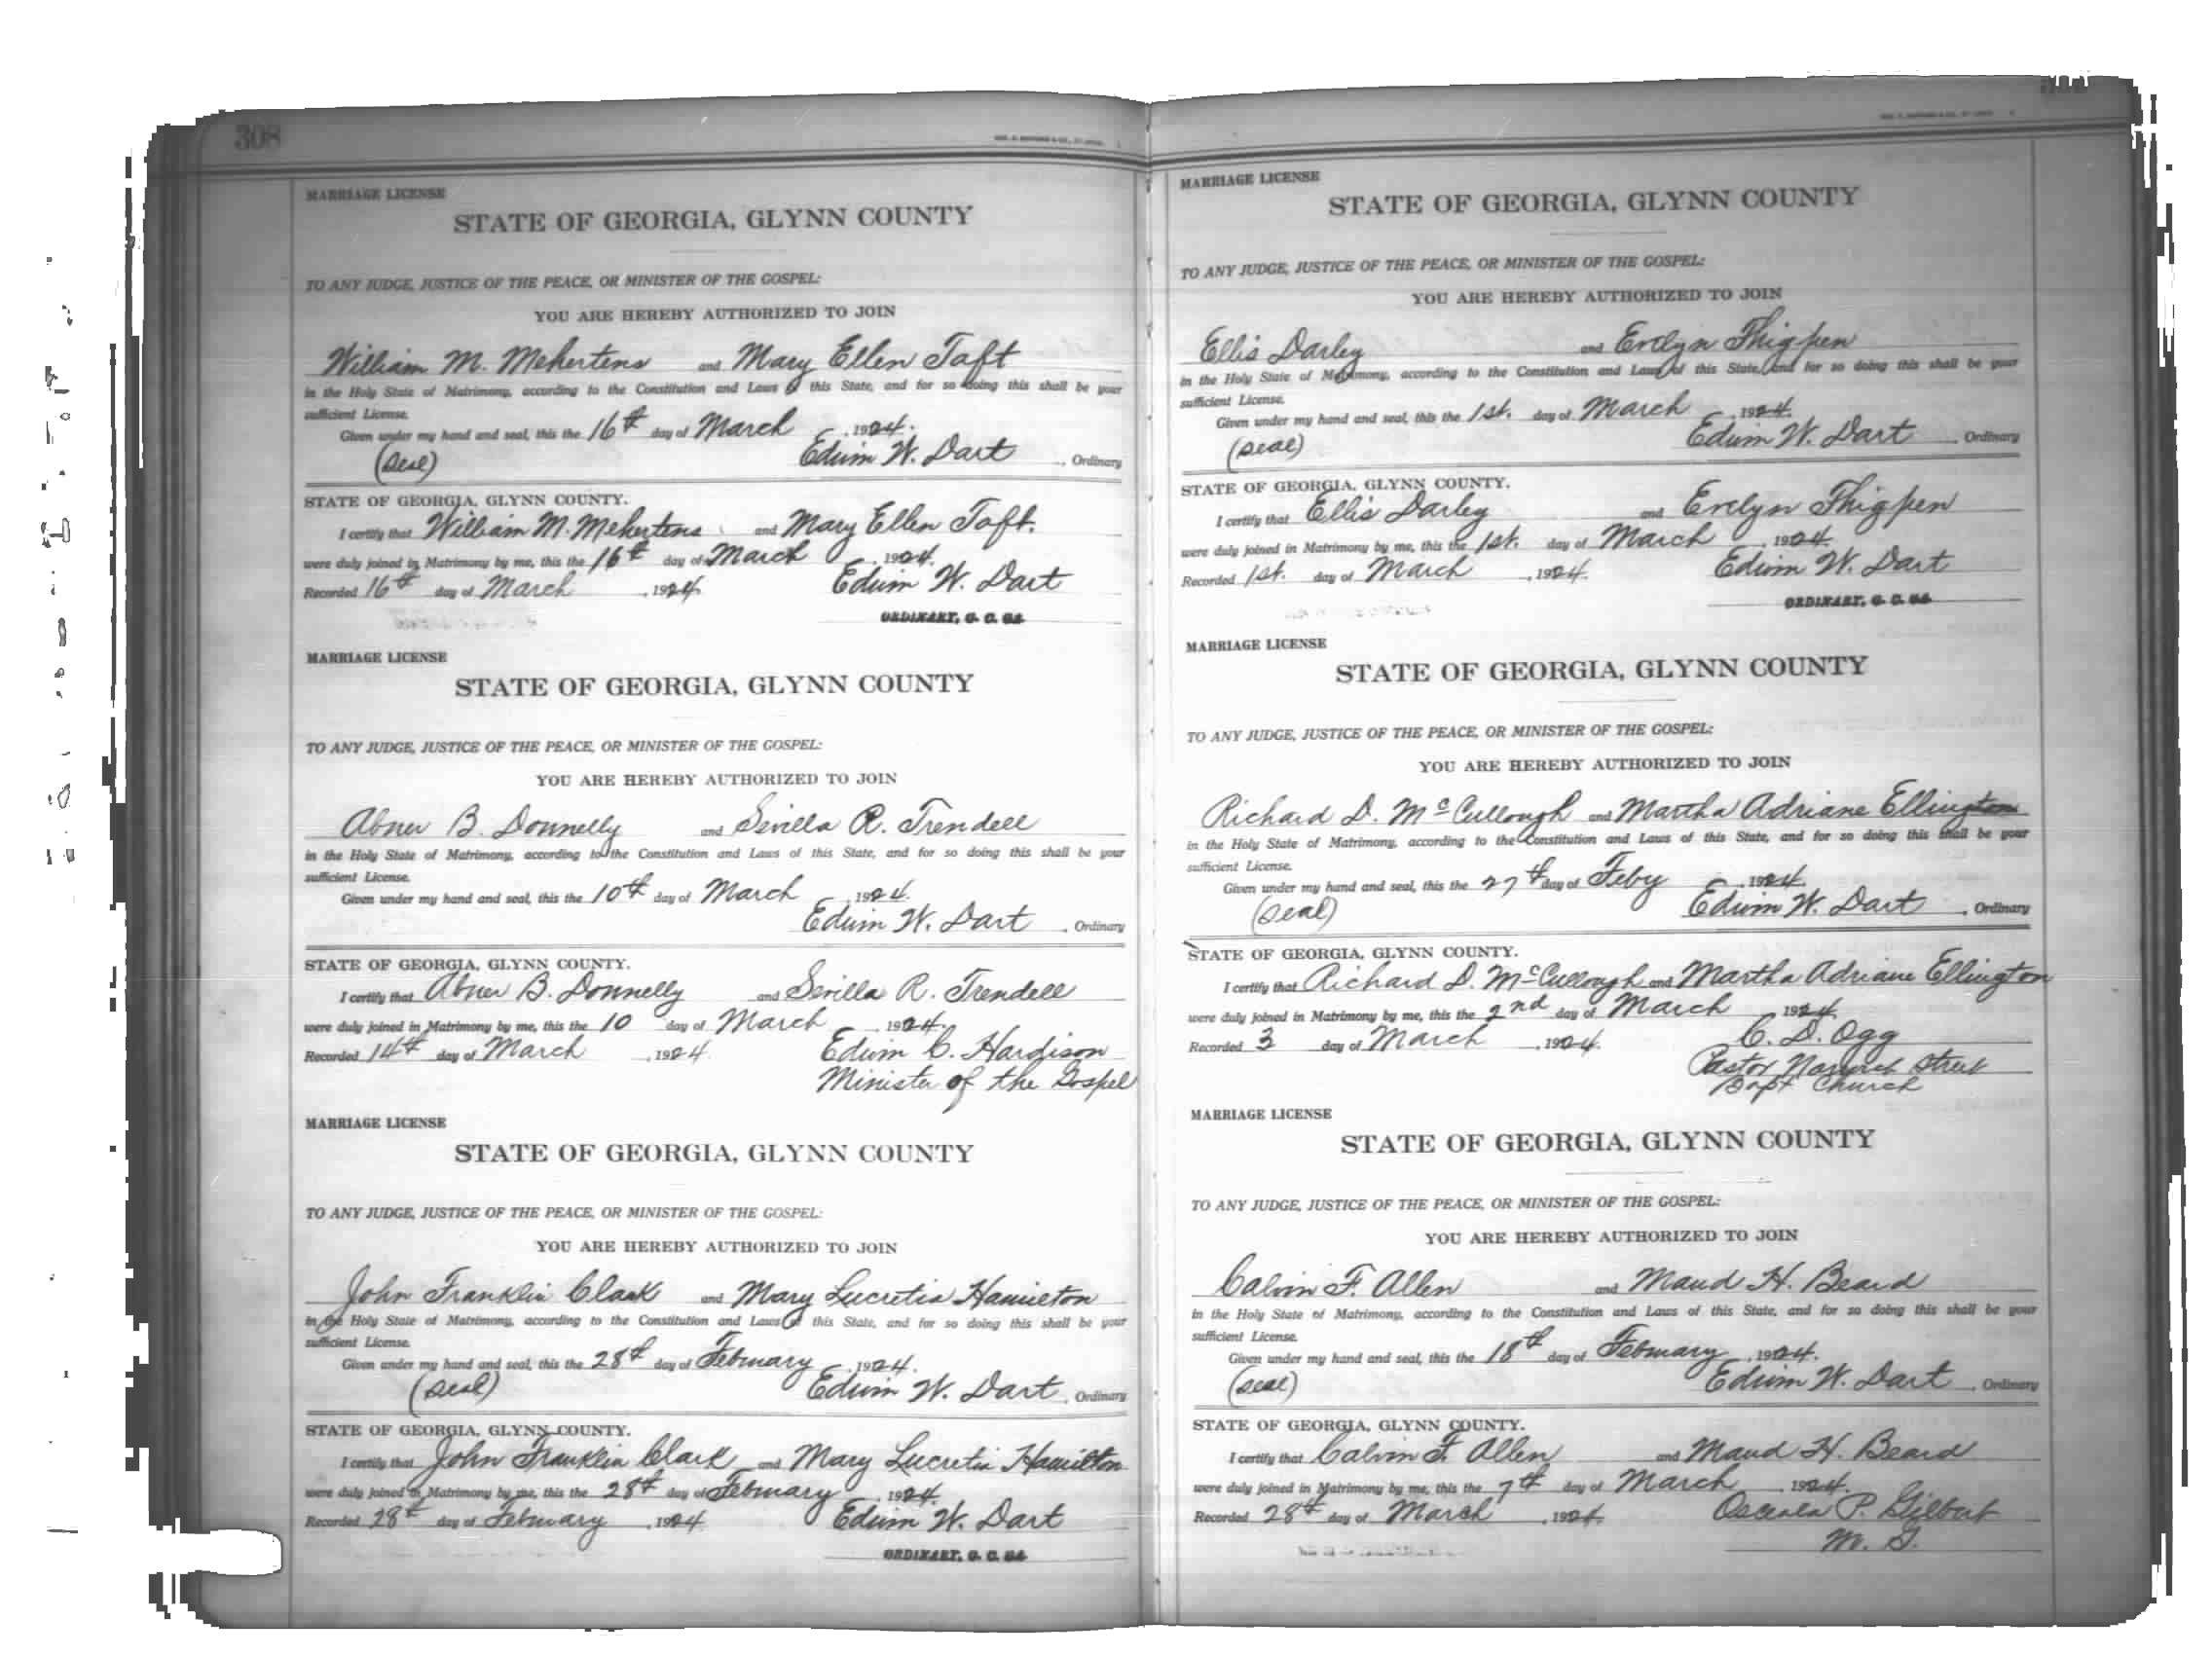 308
MARRIAGE LICENSE
STATE OF GEORGIA, GLYNN COUNTY
TO ANY JUDGE, JUSTICE OF THE PEACE, OR MINISTER OF THE GOSPEL:
YOU ARE HEREBY AUTHORIZED TO JOIN
William M. Mehertens and Mary Ellen Taft
in the Holy State of Matrimony, according to the Constitution and Laws of this State, and for so doing this shall be your
sufficient License.
Given under my hand and seal, this the 16th day of March, 1924.
(Seal) Edwin W. Dart, Ordinary
STATE OF GEORGIA, GLYNN COUNTY.
I certify that William M. Mehertens and Mary Ellen Taft.
were duly joined in Matrimony by me, this the 16th day of March, 1924.
Recorded 16th day of March, 1924 Edwin W. Dart
ORDINARY, G. C. GA.
MARRIAGE LICENSE
STATE OF GEORGIA, GLYNN COUNTY
TO ANY JUDGE, JUSTICE OF THE PEACE, OR MINISTER OF THE GOSPEL:
YOU ARE HEREBY AUTHORIZED TO JOIN
Abner B. Donnelly and Sevilla R. Trendell
in the Holy State of Matrimony, according to the Constitution and Laws of this State, and for so doing this shall be your
sufficient License.
Given under my hand and seal, this the 10th day of March, 1924.
Edwin W. Dart, Ordinary
STATE OF GEORGIA, GLYNN COUNTY.
I certify that Abner B. Donnelly and Sevilla R. Trendell
were duly joined in Matrimony by me, this the 10 day of March, 1924.
Recorded 14th day of March, 1924. Edwin C. Hardison
Minister of the Gospel
MARRIAGE LICENSE
STATE OF GEORGIA, GLYNN COUNTY
TO ANY JUDGE, JUSTICE OF THE PEACE, OR MINISTER OF THE GOSPEL:
YOU ARE HEREBY AUTHORIZED TO JOIN
John Franklin Clark and Mary Lucretia Hamilton
in the Holy State of Matrimony, according to the Constitution and Laws of this State, and for so doing this shall be your
sufficient License.
Given under my hand and seal, this the 28th day of February, 1924.
(Seal) Edwin W. Dart, Ordinary
STATE OF GEORGIA, GLYNN COUNTY.
I certify that John Franklin Clark and Mary Lucretia Hamilton
were duly joined in Matrimony by me, this the 28th day of February, 1924.
Recorded 28th day of February, 1924 Edwin W. Dart
ORDINARY, G. C. GA.
MARRIAGE LICENSE
STATE OF GEORGIA, GLYNN COUNTY
TO ANY JUDGE, JUSTICE OF THE PEACE, OR MINISTER OF THE GOSPEL:
YOU ARE HEREBY AUTHORIZED TO JOIN
Ellis Darley and Evelyn Thigpen
in the Holy State of Matrimony, according to the Constitution and Laws of this State, and for so doing this shall be your
sufficient License.
Given under my hand and seal, this the 1st. day of March, 1924.
(Seal) Edwin W. Dart, Ordinary
STATE OF GEORGIA, GLYNN COUNTY.
I certify that Ellis Darley and Evelyn Thigpen
were duly joined in Matrimony by me, this the 1st. day of March, 1924.
Recorded 1st. day of March, 1924. Edwin W. Dart
ORDINARY, G. C. GA.
MARRIAGE LICENSE
STATE OF GEORGIA, GLYNN COUNTY
TO ANY JUDGE, JUSTICE OF THE PEACE, OR MINISTER OF THE GOSPEL:
YOU ARE HEREBY AUTHORIZED TO JOIN
Richard D. McCullough and Martha Adriane Ellington
in the Holy State of Matrimony, according to the Constitution and Laws of this State, and for so doing this shall be your
sufficient License.
Given under my hand and seal, this the 27th day of Feby, 1924.
(Seal) Edwin W. Dart, Ordinary
STATE OF GEORGIA, GLYNN COUNTY.
I certify that Richard D. McCullough and Martha Adriane Ellington
were duly joined in Matrimony by me, this the 2nd day of March, 1924.
Recorded 3 day of March, 1924. C. D. Ogg
Pastor Norwich Street
Bapt Church
MARRIAGE LICENSE
STATE OF GEORGIA, GLYNN COUNTY
TO ANY JUDGE, JUSTICE OF THE PEACE, OR MINISTER OF THE GOSPEL:
YOU ARE HEREBY AUTHORIZED TO JOIN
Calvin F. Allen and Maud H. Beard
in the Holy State of Matrimony, according to the Constitution and Laws of this State, and for so doing this shall be your
sufficient License.
Given under my hand and seal, this the 18th day of February, 1924.
(Seal) Edwin W. Dart, Ordinary
STATE OF GEORGIA, GLYNN COUNTY.
I certify that Calvin F. Allen and Maud H. Beard
were duly joined in Matrimony by me, this the 7th day of March, 1924.
Recorded 28th day of March, 1924. Osceola P. Gilbert
M. G.